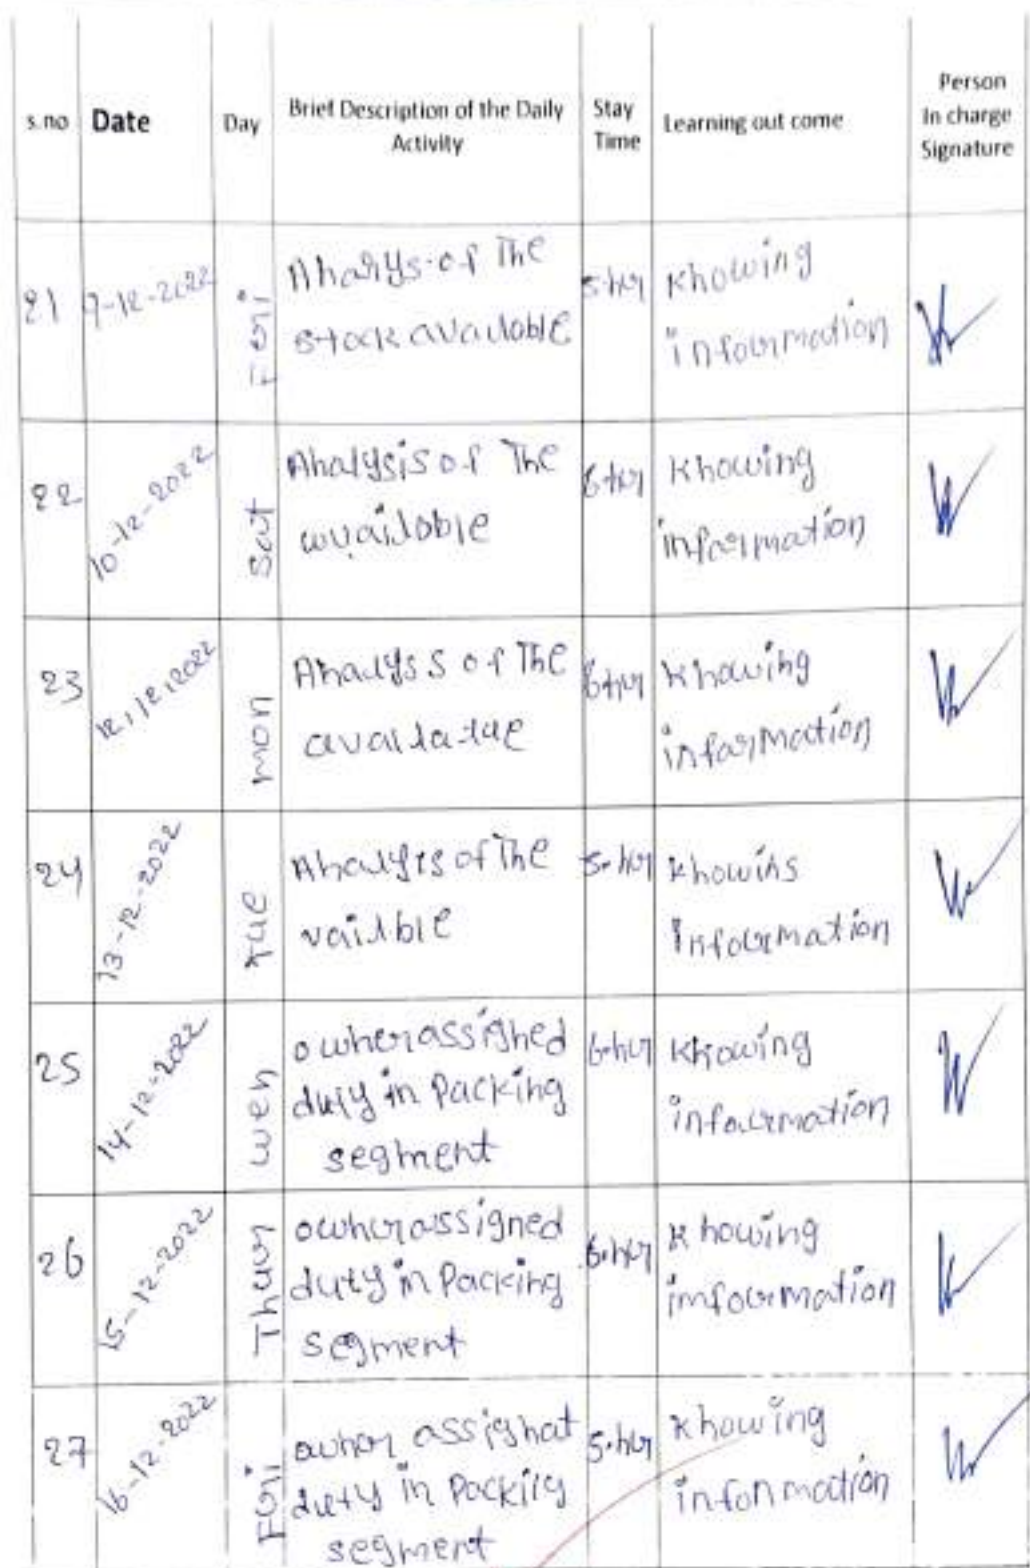 s.no Date Day Brief Description of the Daily Activity Stay Time Learning out come Person In charge Signature
21 9-12-2022 Fri Analys of The stock available 5-hr Knowing information
22 10-12-2022 Sat Analysis of The available 6-hr Knowing information
23 12,12,2022 mon Analys s of The 6-hr Knowing information
24 13-12-2022 tue Analysis of The vailble 5-hr knowins Information
25 14-12-2022 wen owner assigned duty in Packing segment 6-hr Knowing information
26 15-12-2022 Thur owner assigned duty in Packing segment 6-hr Knowing imformation
27 16-12-2022 Fri owner assignat duty in Packing segment 5-hr Knowing information